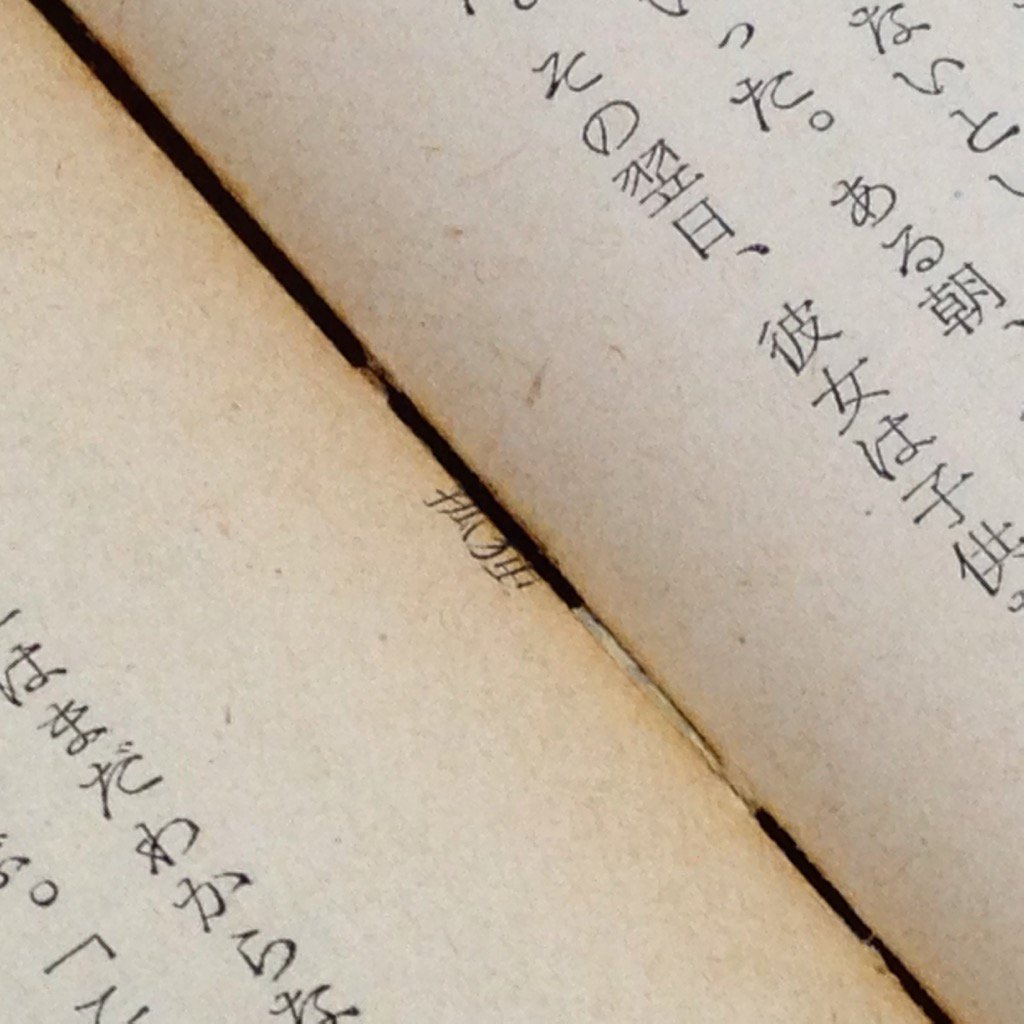 ないとい
った。ある朝、
その翌日、彼女は子供。
孤独
はまだわからな
。「そ